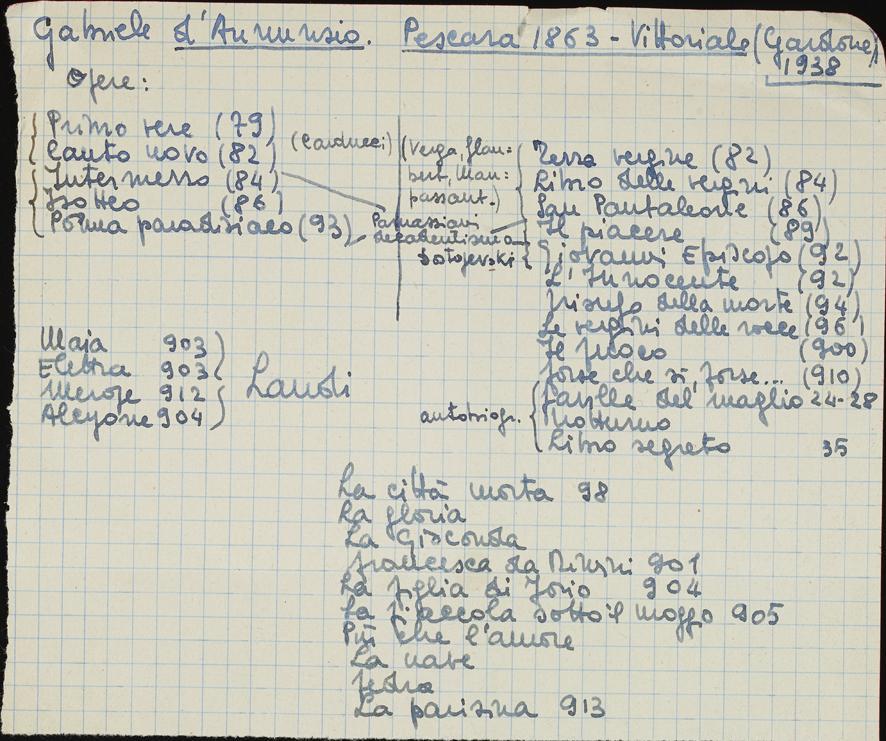 Gabriele d'Annunzio. Pescara 1863 - Vittoriale (Gardone)
1938
Opere:
Primo vere (79)
Canto novo (82)
Intermezzo (84)
Isotteo (86)
Poema paradisiaco (93)
(Carducci)
(Verga, Flau=
bert, Mau=
passant.)
Parnassiani
decadentismo
Dostojevski
Terra vergine (82)
Libro delle vergini (84)
San Pantaleone (86)
Il piacere (89)
Giovanni Episcopo (92)
L'Innocente (92)
Trionfo della morte (94)
Le vergini delle rocce (96)
Il fuoco (900)
Forse che sì, forse... (910)
autobiogr.
Faville del maglio 24-28
Notturno
Libro segreto 35
Maja 903
Elettra 903
Merope 912
Alcyone 904
Laudi
La città morta 98
La gloria
La Gioconda
Francesca da Rimini 901
La figlia di Jorio 904
La fiaccola sotto il moggio 905
Più che l'amore
La nave
Fedra
La parisina 913